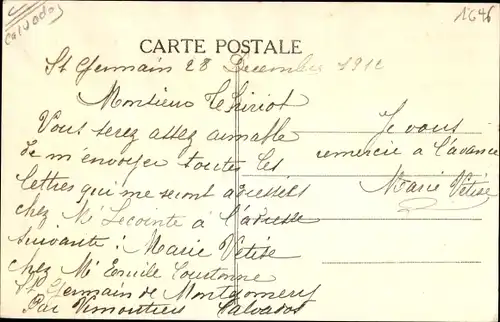 Calvados
1646
CARTE POSTALE
St Germain 28 Decembre 1912
Monsieur Thiriot
Vous serez assez aimable
de m'envoyer toutes les
lettres qui me seront adressées
chez Mr Lecointe à l'adresse
suivante : Marie Vetise
chez Mr Emile Courtonne
St Germain de Montgomery
Par Vimoutiers Calvados
Je vous
remercie a l'avance
Marie Vetise